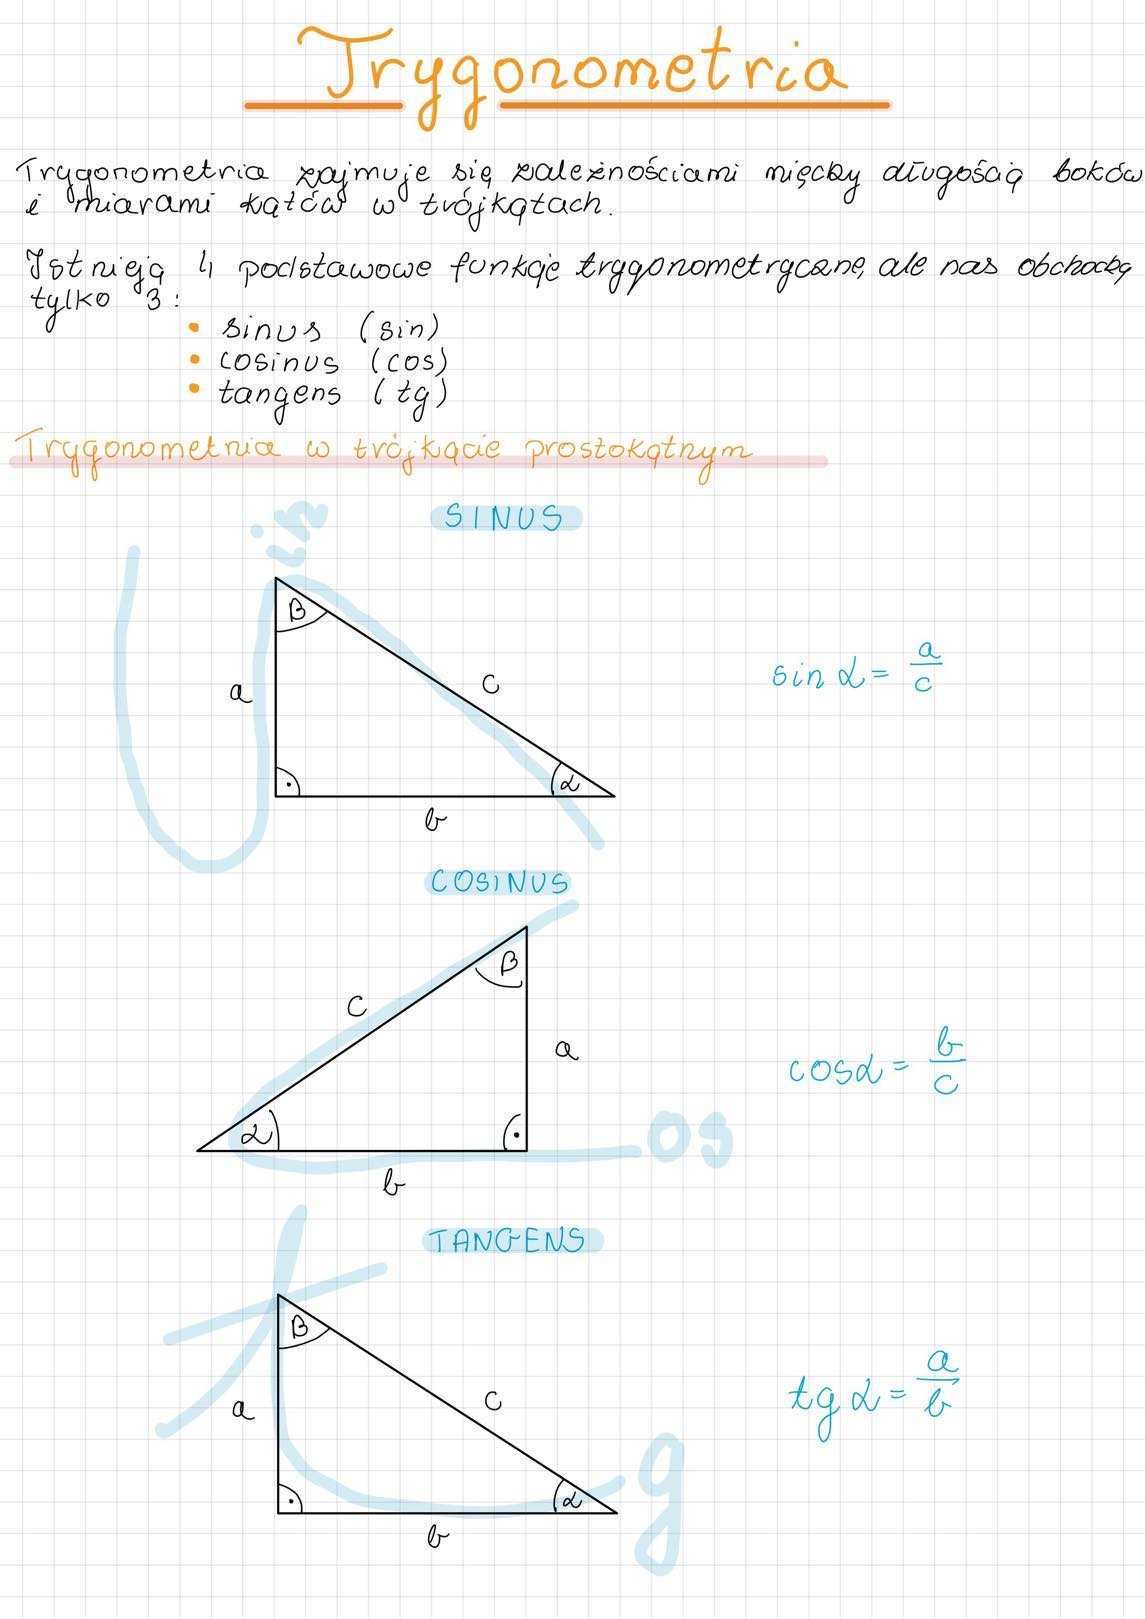 Trygonometria
Trygonometria zajmuje się zależnościami między długością boków
i miarami kątów w trójkątach.
Istnieją 4 podstawowe funkcje trygonometryczne, ale nas obchodzą
tylko 3:
• sinus (sin)
• cosinus (cos)
• tangens (tg)
Trygonometria w trójkącie prostokątnym
SINUS
in
β
a
c
sin α = a/c
α
b
COSINUS
β
c
a
cosα = b/c
α
os
b
TANGENS
β
a
c
tg α = a/b
α
g
b